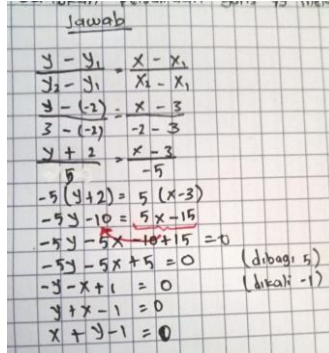 Jawab
y - y₁ / y₂ - y₁ = x - x₁ / x₂ - x₁
y - (-2) / 3 - (-2) = x - 3 / -2 - 3
y + 2 / 5 = x - 3 / -5
-5 (y+2) = 5 (x-3)
-5y - 10 = 5x - 15
-5y - 5x - 10 + 15 = 0
-5y - 5x + 5 = 0 (dibagi 5)
-y - x + 1 = 0 (dikali -1)
y + x - 1 = 0
x + y - 1 = 0